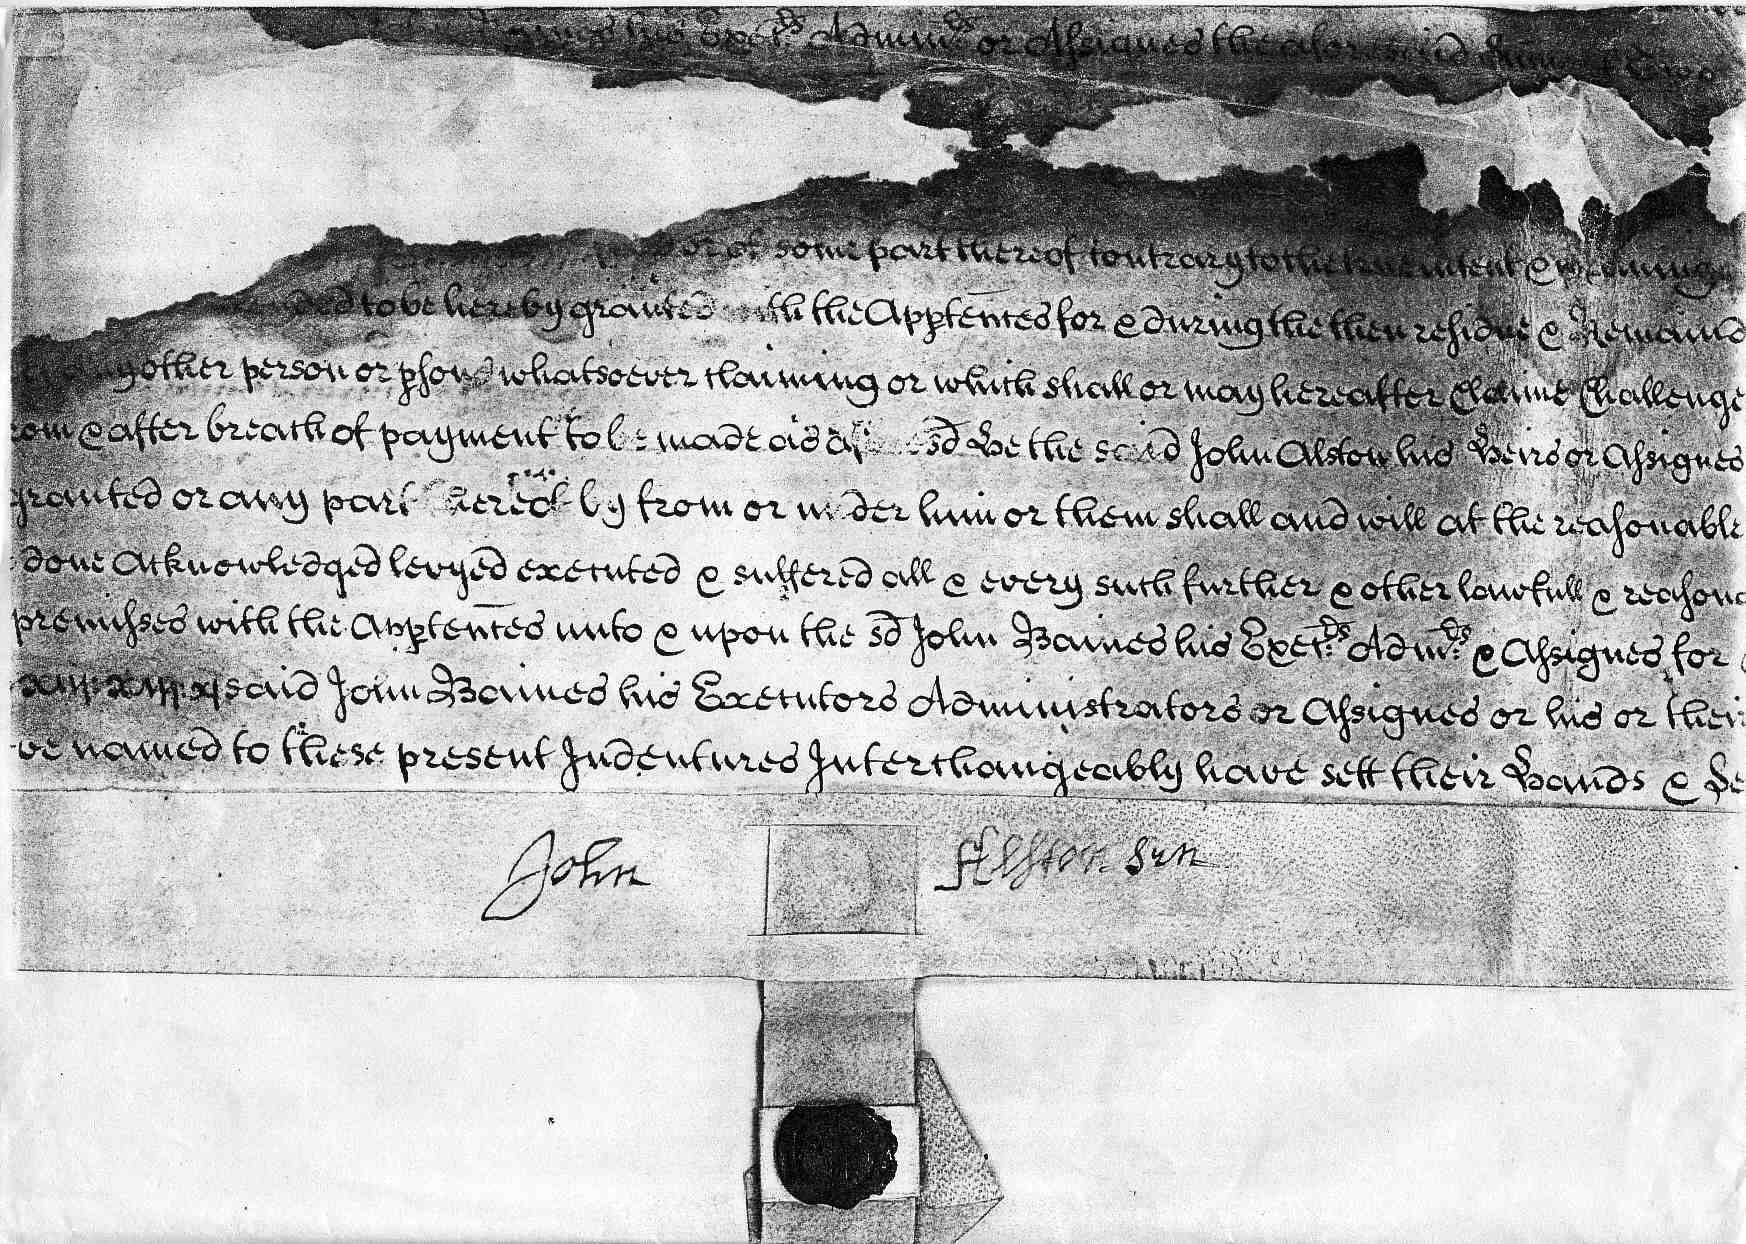 his Exet.rs Admin.rs or Assignes the aforesaid Sum of Two
or of some part thereof contrary to the true intent & meaning
ded to be hereby granted with the Apptences for & during the then residue & Remaind
other person or psons whatsoever claiming or which shall or may hereafter Claime Challenge
om & after breach of payment to be made as afsd He the said John Alston his Heirs or Assignes
granted or any part thereof by from or under him or them shall and will at the reasonable
done Acknowledged levyed executed & suffered all & every such further & other lawfull & reasona
premisses with the Apptences unto & upon the sd John Baines his Exet.rs Adm.rs & Assignes for
said John Baines his Executors Administrators or Assignes or his or their
ve named to these present Indentures Interchangeably have sett their Hands & Se
John Alston sen